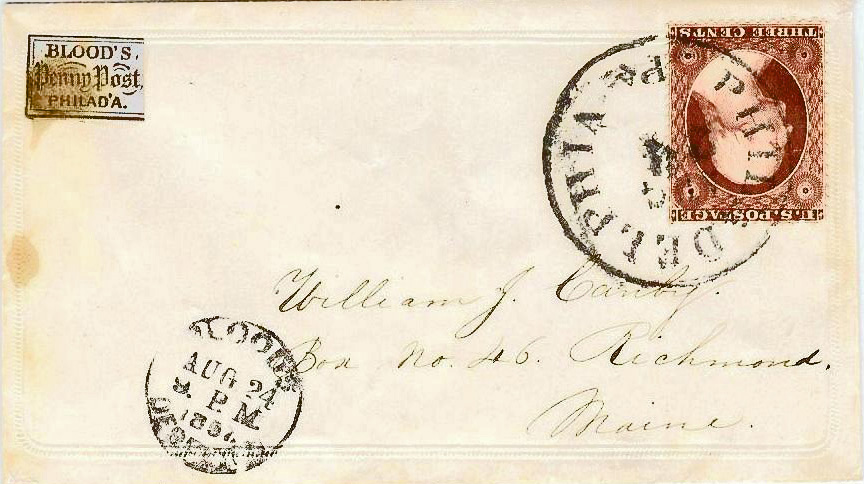 BLOOD'S
Penny Post,
PHILAD'A.
THREE CENTS
U.S. POSTAGE
PHILADELPHIA Pa.
William J. Canby.
Box No. 46. Richmond,
Maine.
BLOOD'S
AUG 24
P.M.
1857